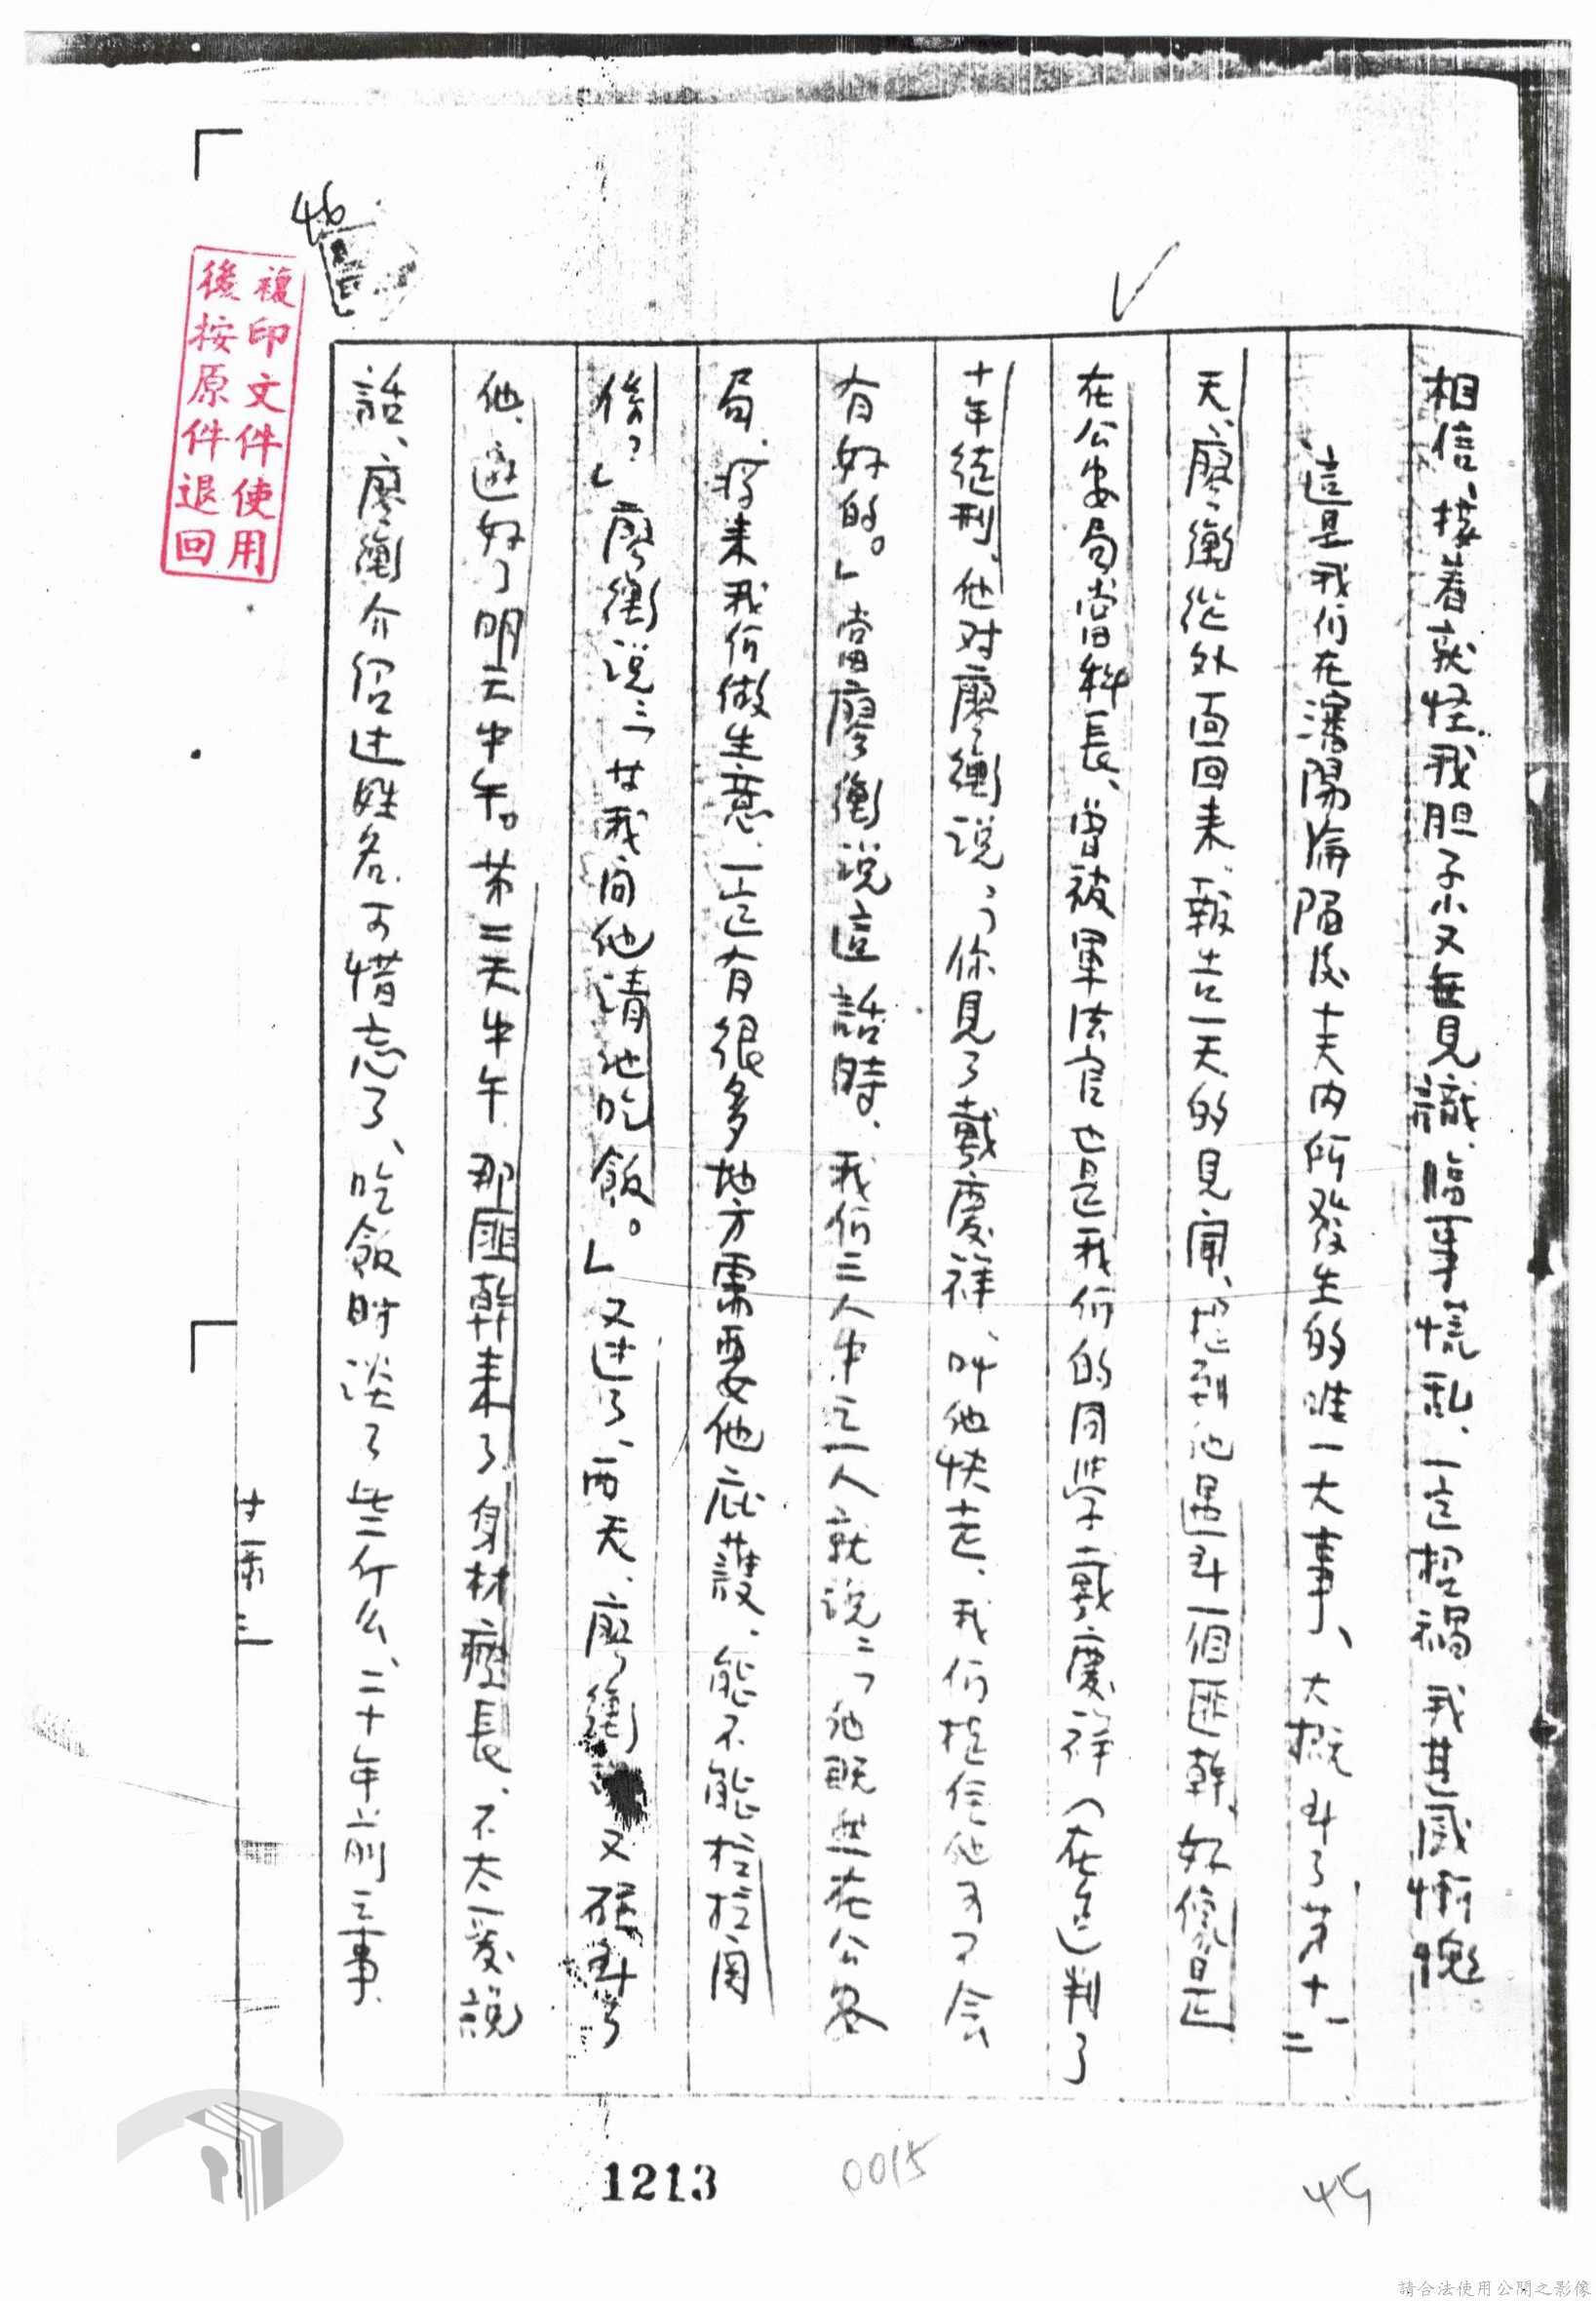 相信、接着就怪我胆子小又無見識、臨事慌乱、一定招禍、我甚感慚愧、
這是我们在瀋陽淪陷後十天内所發生的唯一大事、大概到了第十一二
天、廖衡從外面回来、報告一天的見聞、提到他遇到一個匪幹、好像曾正
在公安局當科長、曾被軍法官也是我们的同學戴慶祥（在逃）判了
十年徒刑、他对廖衡说：「你見了戴慶祥、叫他快走、我们捉住他可不会
有好的。」當廖衡說這話時、我们三人中之一人就说：「他既然在公安
局、将来我们做生意、一定有很多地方需要他庇護、能不能拉拉関
係？」廖衡说：「廿我间他請他吃飯。」又过了兩天、廖衡又碰到了
他、邀好了明天中午。第二天中午、那匪幹来了、身材瘦長、不太愛說
話、廖衡介绍过姓名、可惜忘了、吃飯时谈了些什么、二十年前之事、
46
複印文件使用
後按原件退回
1213
0015
45
請合法使用公開之影像